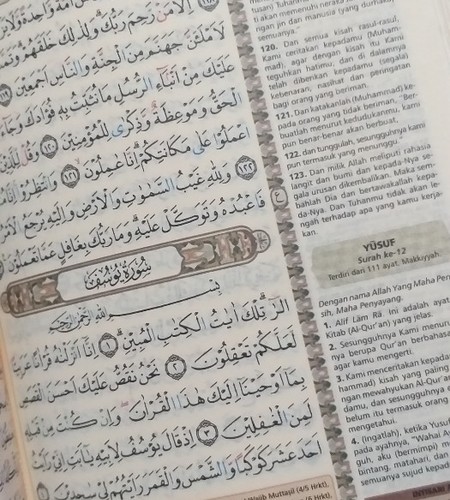 إِلَّا مَنْ رَّحِمَ رَبُّكَ وَلِذٰلِكَ خَلَقَهُمْ وَتَمَّتْ
لَاَمْلَئَنَّ جَهَنَّمَ مِنَ الْجِنَّةِ وَالنَّاسِ اَجْمَعِيْنَ ﴿١١٩﴾
عَلَيْكَ مِنْ اَنْبَاۤءِ الرُّسُلِ مَا نُثَبِّتُ بِهٖ فُؤَادَكَ وَجَاۤءَكَ
الْحَقُّ وَمَوْعِظَةٌ وَّذِكْرٰى لِلْمُؤْمِنِيْنَ ﴿١٢٠﴾ وَقُلْ لِّلَّذِيْنَ
اعْمَلُوْا عَلٰى مَكَانَتِكُمْ اِنَّا عٰمِلُوْنَ ﴿١٢١﴾ وَانْتَظِرُوْا اِنَّا
﴿١٢٢﴾ وَلِلّٰهِ غَيْبُ السَّمٰوٰتِ وَالْاَرْضِ وَاِلَيْهِ يُرْجَعُ الْاَمْرُ
فَاعْبُدْهُ وَتَوَكَّلْ عَلَيْهِ وَمَا رَبُّكَ بِغَافِلٍ عَمَّا تَعْمَلُوْنَ
سُوْرَةُ يُوْسُفَ
بِسْمِ اللّٰهِ الرَّحْمٰنِ الرَّحِيْمِ
الۤرٰ تِلْكَ اٰيٰتُ الْكِتٰبِ الْمُبِيْنِ ﴿١﴾ اِنَّآ اَنْزَلْنٰهُ قُرْاٰنًا عَرَبِيًّا
لَّعَلَّكُمْ تَعْقِلُوْنَ ﴿٢﴾ نَحْنُ نَقُصُّ عَلَيْكَ اَحْسَنَ الْقَصَصِ
بِمَآ اَوْحَيْنَآ اِلَيْكَ هٰذَا الْقُرْاٰنَ وَاِنْ كُنْتَ مِنْ قَبْلِهٖ
لَمِنَ الْغٰفِلِيْنَ ﴿٣﴾ اِذْ قَالَ يُوْسُفُ لِاَبِيْهِ يٰٓاَبَتِ اِنِّيْ رَاَيْتُ
اَحَدَ عَشَرَ كَوْكَبًا وَّالشَّمْسَ وَالْقَمَرَ رَاَيْتُهُمْ لِيْ سٰجِدِيْنَ
Wajib Muttaṣil (4/5 Hrkt),
ati Tuhanmu
akan memenuhi neraka
ngan jin dan manusia (yang durhaka)
semuanya."
120. Dan semua kisah rasul-rasul,
Kami ceritakan kepadamu (Muham-
mad), agar dengan kisah itu Kami
teguhkan hatimu; dan di dalamnya
telah diberikan kepadamu (segala)
kebenaran, nasihat dan peringatan
bagi orang yang beriman.
121. Dan katakanlah (Muhammad) ke-
pada orang yang tidak beriman, "Ber-
buatlah menurut kedudukanmu, kami
pun benar-benar akan berbuat,
122. dan tunggulah, sesungguhnya kami
pun termasuk yang menunggu.
123. Dan milik Allah meliputi rahasia
langit dan bumi dan kepada-Nya se-
gala urusan dikembalikan. Maka sem-
bahlah Dia dan bertawakallah kepa-
da-Nya. Dan Tuhanmu tidak akan le-
ngah terhadap apa yang kamu kerja-
kan.
YŪSUF
Surah ke-12
Terdiri dari 111 ayat. Makkiyyah.
Dengan nama Allah Yang Maha Penga-
sih, Maha Penyayang.
1. Alif Lām Rā. Ini adalah ayat
Kitab (Al-Qur'an) yang jelas.
2. Sesungguhnya Kami menurun
nya berupa Qur'an berbahasa
agar kamu mengerti.
3. Kami menceritakan kepadamu
hammad) kisah yang paling
ngan mewahyukan Al-Qur'an
damu, dan sesungguhnya
belum itu termasuk orang
mengetahui.
4. (Ingatlah), ketika Yusuf
pada ayahnya, "Wahai Ay
guh, aku (bermimpi) me
bintang, matahari, dan
semuanya sujud kepada